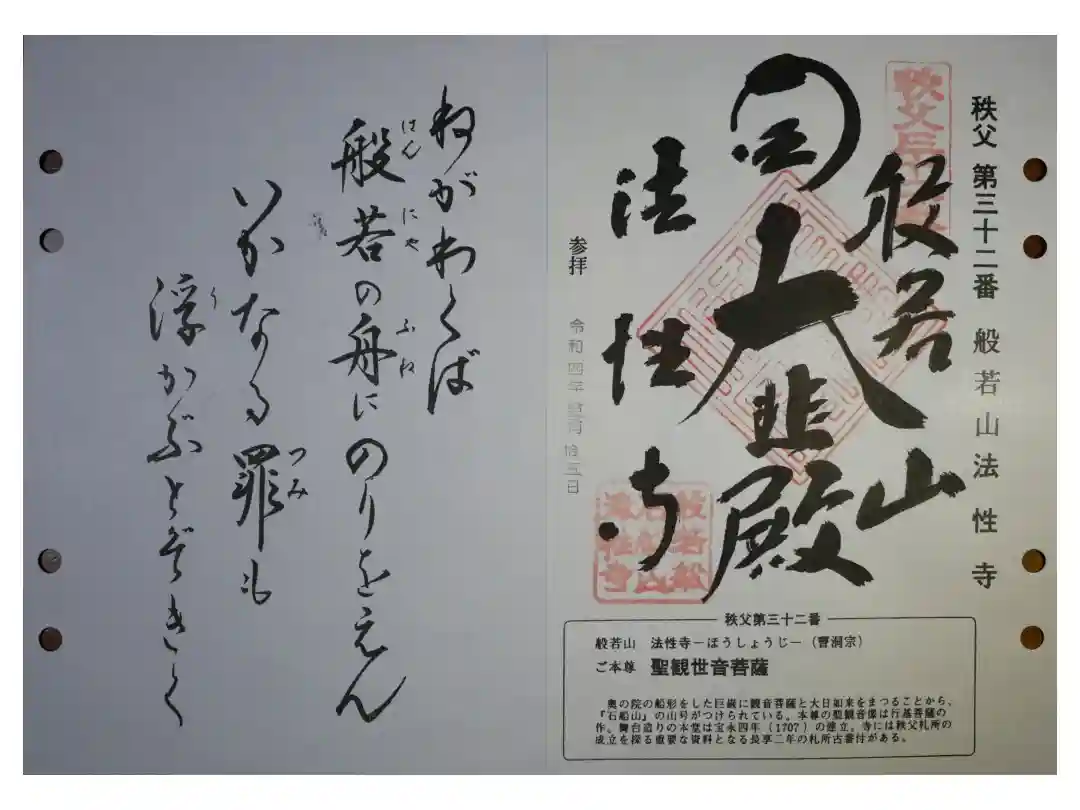 秩父 第三十二番 般若山法性寺
般若山
大悲殿
法性寺
参拝 令和四年 月 拾五日
秩父第三十二番
般若山 法性寺－ほうしょうじ－（曹洞宗）
ご本尊 聖観世音菩薩
奥の院の船形をした巨巌に観音菩薩と大日如来をまつることから、
『石船山』の山号がつけられている。本尊の聖観音像は行基菩薩の
作。舞台造りの本堂は宝永四年（1707）の建立。寺には秩父札所の
成立を探る重要な資料となる長享二年の札所古番付がある。
ねがわくば
はん にや ふね
般若の舟にのりをえん
つみ
いかなる罪も
う
浮かぶとぞきく